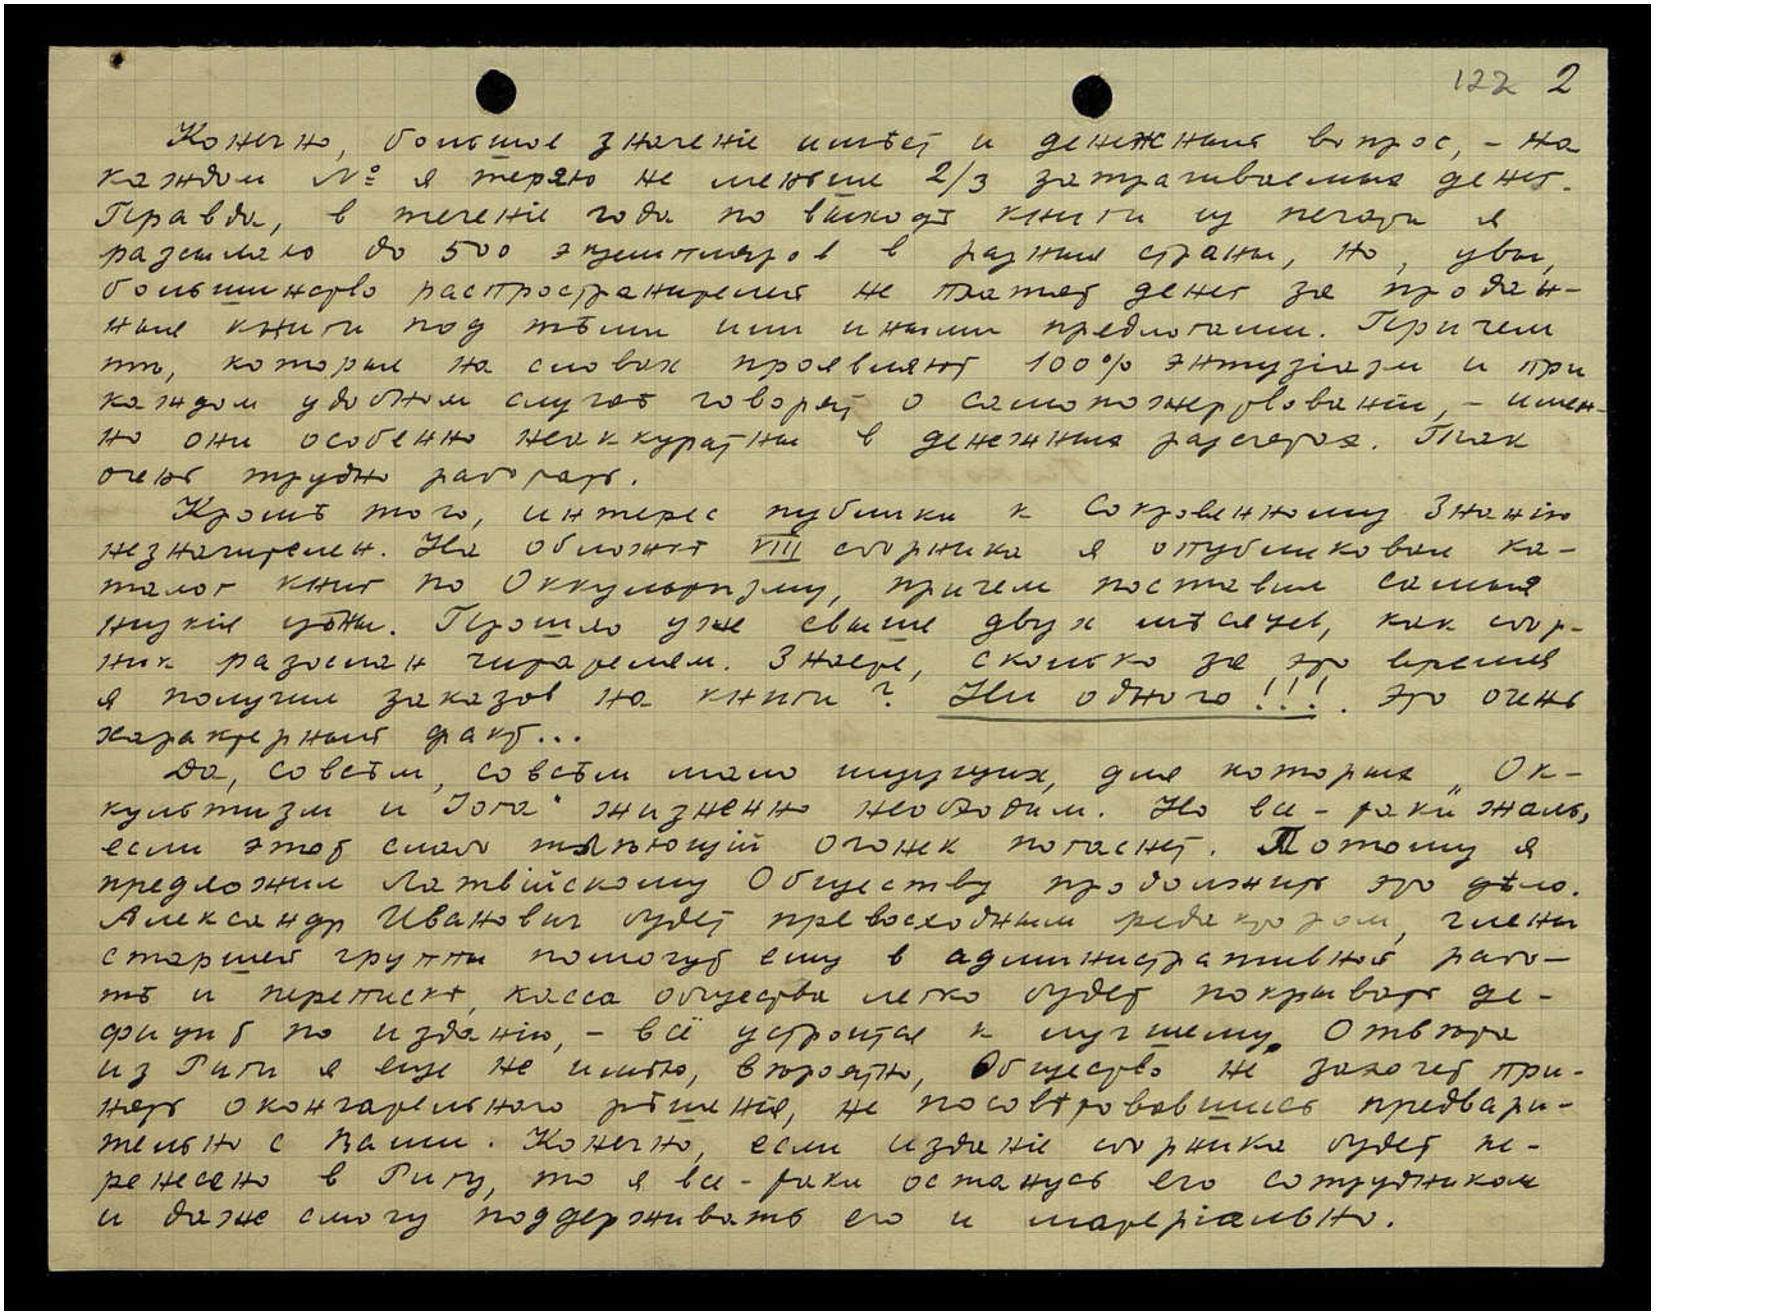 122 2
Конечно, большое значеніе имѣет и денежный вопрос, – на
каждом № я теряю не меньше 2/3 затрачиваемых денег.
Правда, в теченіе года по выходѣ книги из печати я
разсылаю до 500 экземпляров в разныя страны, но, увы,
большинство распространителей не платят денег за продан-
ныя книги под тѣми или иными предлогами. Причем
тѣ, которые на словах проявляют 100% энтузіазм и при
каждом удобном случаѣ говорят о самопожертвованіи, – имен-
но они особенно неаккуратны в денежных разсчетах. Так
очень трудно работать.
Кромѣ того, интерес публики к Сокровенному Знанію
незначителен. На обложкѣ VIII сборника я опубликовал ка-
талог книг по Оккультизму, причем поставил самыя
низкія цѣны. Прошло уже свыше двух мѣсяцев, как сбор-
ник разослан читателям. Знаете, сколько за это время
я получил заказов на книги? Ни одного!!!. Это очень
характерный факт...
Да, совсѣм, совсѣм мало ищущих, для которых „Ок-
культизм и Іога" жизненно необходим. Но все-таки жаль,
если этот слабо тлѣющій огонек погаснет. Потому я
предложил Латвійскому Обществу продолжить это дѣло.
Александр Иванович будет превосходным редактором, члены
старшей группы помогут ему в административной рабо-
тѣ и перепискѣ, касса общества легко будет покрывать де-
фицит по изданію, – всё устроится к лучшему. Отвѣта
из Риги я еще не имѣю, вѣроятно, Общество не захочет при-
нять окончательного рѣшенія, не посовѣтовавшись предвари-
тельно с Вами. Конечно, если изданіе сборника будет пе-
ренесено в Ригу, то я все-таки останусь его сотрудником
и даже смогу поддерживать его и матеріально.